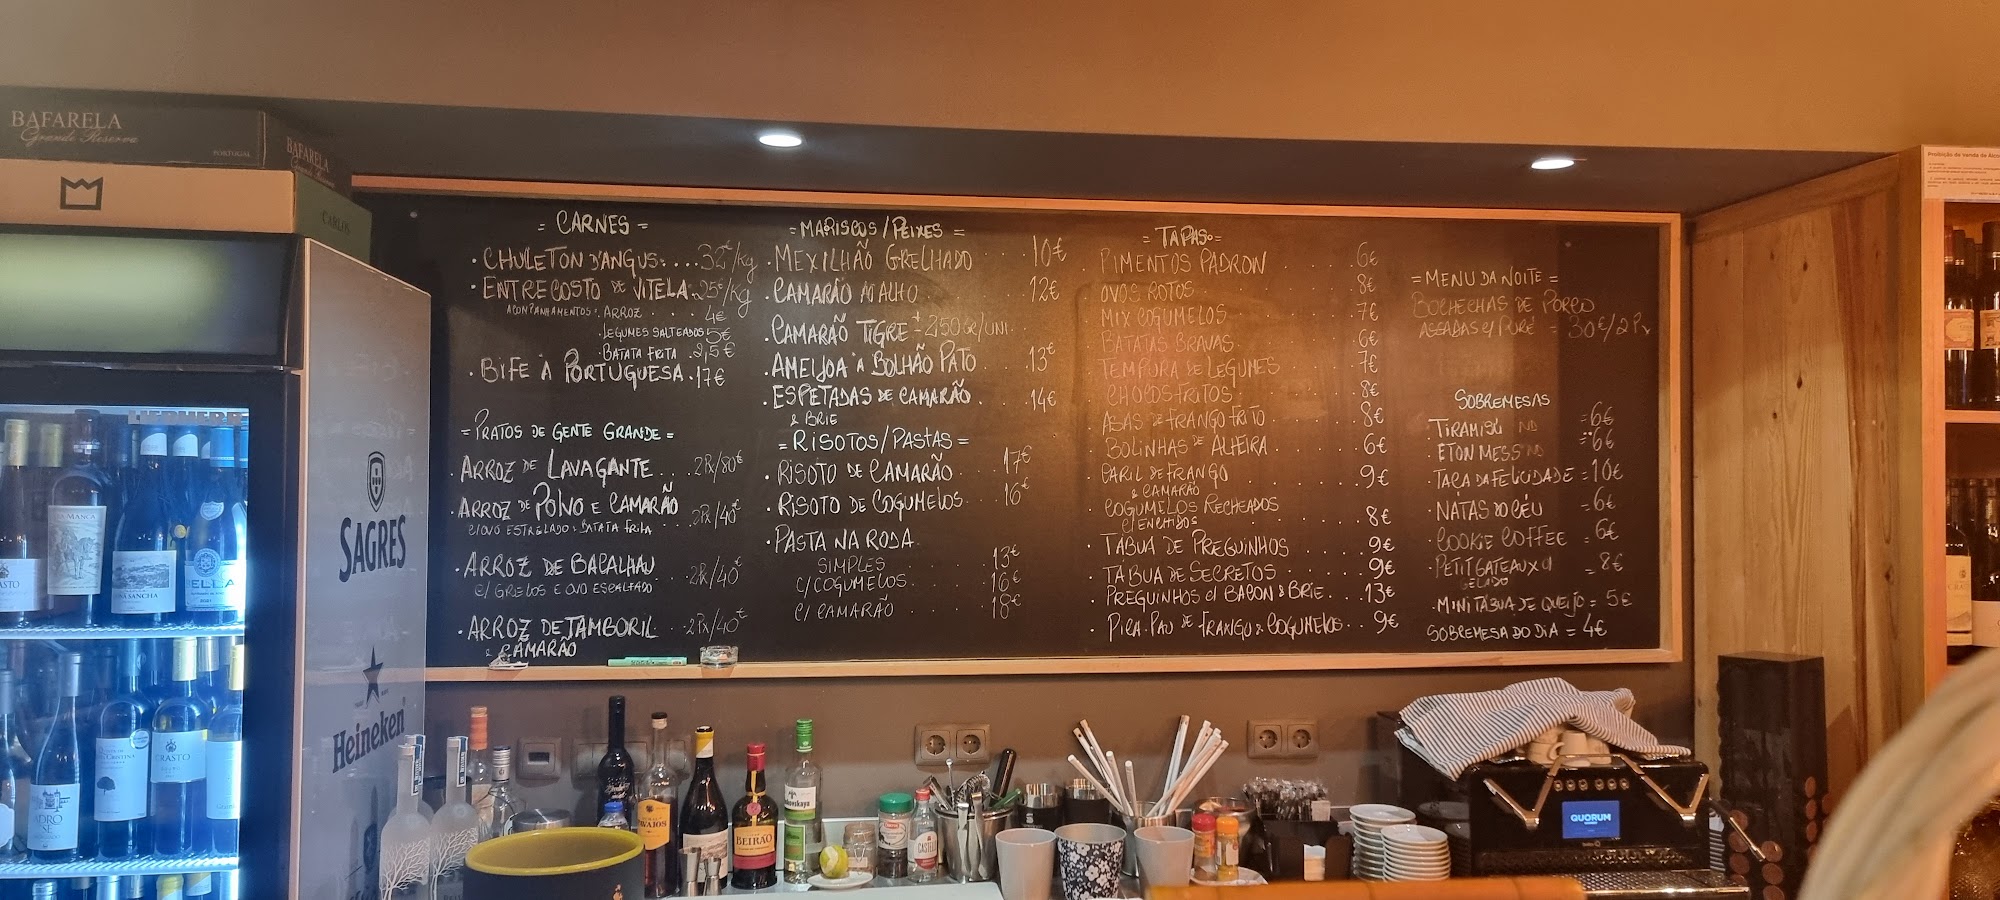 BAFARELA
Grande Reserva
PORTUGAL
BAFARELA
CARLOS
SAGRES
Heineken
= CARNES =
· CHULETON D'ANGUS....32€/kg
· ENTRECOSTO DE VITELA.25€/kg
ACOMPANHAMENTOS: ARROZ . . 4€
· LEGUMES SALTEADOS 5€
· BATATA FRITA .2,5€
· BIFE À PORTUGUESA.17€
= PRATOS DE GENTE GRANDE =
· ARROZ DE LAVAGANTE...2Px/80€
· ARROZ DE POLVO E CAMARÃO
C/OVO ESTRELADO & BATATA FRITA ..2Px/40€
· ARROZ DE BACALHAU
C/ GRELOS E OVO ESCALFADO ..2Px/40€
· ARROZ DE TAMBORIL ...2Px/40€
& CAMARÃO
= MARISCOS/PEIXES =
· MEXILHÃO GRELHADO . . . 10€
· CAMARÃO AO ALHO . . . . 12€
· CAMARÃO TIGRE ± 250GR/UNI.
· AMEIJOA À BOLHÃO PATO . . 13€
· ESPETADAS DE CAMARÃO . . . 14€
& BRIE
= RISOTOS/PASTAS =
· RISOTO DE CAMARÃO . . . 17€
· RISOTO DE COGUMELOS . . . 16€
· PASTA NA RODA
SIMPLES . . . . 13€
C/COGUMELOS . . . . 16€
C/ CAMARÃO . . . . 18€
= TAPAS =
· PIMENTOS PADRON . . . . . 6€
· OVOS ROTOS . . . . . 8€
· MIX COGUMELOS . . . . . 7€
· BATATAS BRAVAS . . . . . 6€
· TEMPURA DE LEGUMES . . . . 7€
· CHOCOS FRITOS . . . . . 8€
· ASAS DE FRANGO FRITO . . . . 8€
· BOLINHAS DE ALHEIRA . . . . 6€
· CARIL DE FRANGO . . . . . 9€
& CAMARÃO
· COGUMELOS RECHEADOS
C/ENCHIDOS . . . . . 8€
· TÁBUA DE PREGUINHOS . . . 9€
· TÁBUA DE SECRETOS . . . . 9€
· PREGUINHOS C/ BACON & BRIE...13€
· PICA-PAU DE FRANGO & COGUMELOS..9€
= MENU DA NOITE =
BOCHECHAS DE PORCO
ASSADAS C/ PURÉ = 30€/2Px
SOBREMESAS
· TIRAMISÚ ND =6€
· ETON MESS ND =6€
· TAÇA DA FELICIDADE =10€
· NATAS DO CÉU =6€
· COOKIE COFFEE = 6€
· PETIT GATEAUX C/ = 8€
GELADO
· MINI TÁBUA DE QUEIJO = 5€
SOBREMESA DO DIA = 4€
LA MANCA
CRASTO
BEIRÃO
QUORUM
Proibição de Venda de Álco